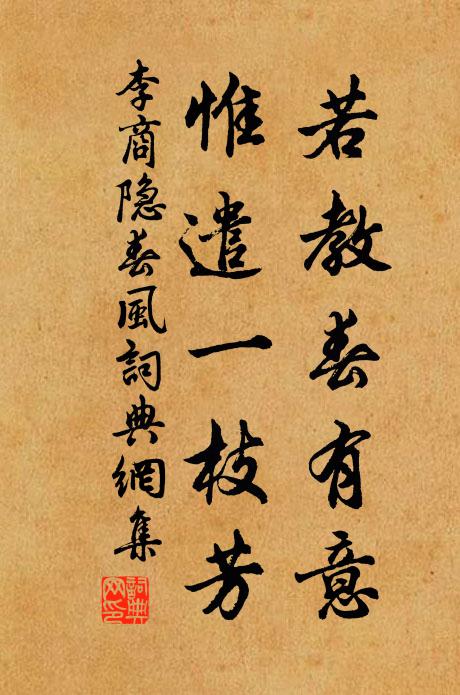 若教春有意
惟遣一枝芳
李商隐春風詞典網集
詞典網印